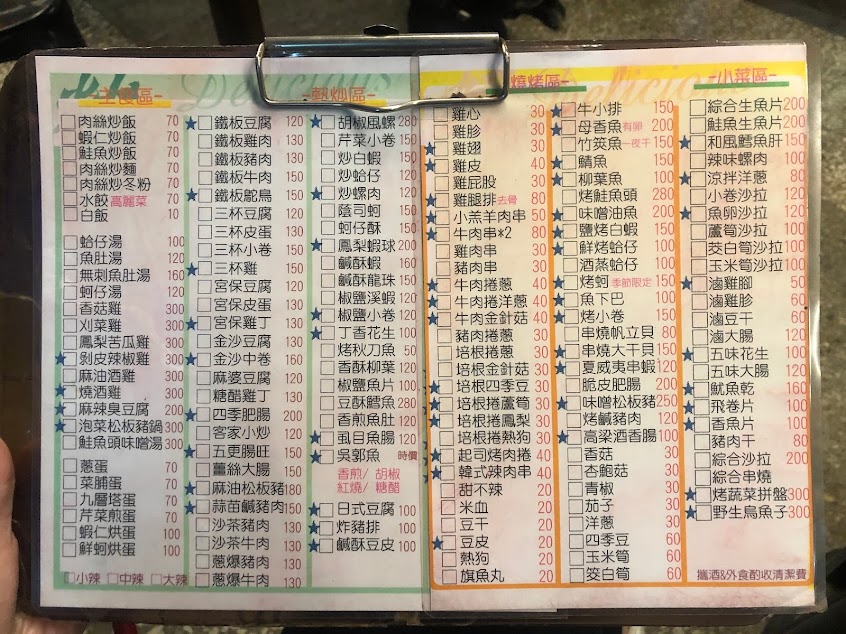 主食區
肉絲炒飯 70
蝦仁炒飯 70
鮭魚炒飯 70
肉絲炒麵 70
肉絲炒冬粉 70
水餃 高麗菜 70
白飯 10
蛤仔湯 100
魚肚湯 120
無刺魚肚湯 160
蚵仔湯 120
香菇雞 300
刈菜雞 300
鳳梨苦瓜雞 300
剝皮辣椒雞 300
麻油酒雞 300
燒酒雞 300
麻辣臭豆腐 200
泡菜松板豬鍋 300
鮭魚頭味噌湯 300
蔥蛋 70
菜脯蛋 70
九層塔蛋 70
芹菜煎蛋 70
蝦仁烘蛋 100
鮮蚵烘蛋 100
小辣 中辣 大辣
熱炒區
鐵板豆腐 120
鐵板雞肉 130
鐵板豬肉 130
鐵板牛肉 150
鐵板鴕鳥 150
三杯豆腐 120
三杯皮蛋 130
三杯小卷 150
三杯雞 150
宮保豆腐 120
宮保皮蛋 130
宮保雞丁 130
金沙豆腐 130
金沙中卷 160
麻婆豆腐 120
糖醋雞丁 130
四季肥腸 200
客家小炒 120
五更腸旺 150
薑絲大腸 150
麻油松板豬 180
蒜苗鹹豬肉 150
沙茶豬肉 130
沙茶牛肉 130
蔥爆豬肉 130
蔥爆牛肉 130
胡椒風螺 280
芹菜小卷 150
炒白蝦 150
炒蛤仔 120
炒螺肉 120
蔭司蚵 150
蚵仔酥 150
鳳梨蝦球 200
鹹酥蝦 160
鹹酥龍珠 150
椒鹽溪蝦 120
椒鹽小卷 120
丁香花生 100
烤秋刀魚 50
香酥柳葉 120
椒鹽魚片 100
豆酥鱈魚 280
香煎魚肚 120
虱目魚腸 120
吳郭魚 時價
香煎/ 胡椒
紅燒/ 糖醋
日式豆腐 100
炸豬排 100
鹹酥豆皮 100
燒烤區
雞心 30
雞胗 30
雞翅 30
雞皮 40
雞屁股 30
雞腿排 去骨 80
小羔羊肉串 50
牛肉串*2 80
雞肉串 30
豬肉串 30
牛肉捲蔥 40
牛肉捲洋蔥 40
牛肉金針菇 40
豬肉捲蔥 30
培根捲蔥 30
培根金針菇 30
培根四季豆 30
培根捲蘆筍 30
培根捲鳳梨 30
培根捲熱狗 30
起司烤肉捲 40
韓式辣肉串 40
甜不辣 20
米血 20
豆干 20
豆皮 20
熱狗 20
旗魚丸 20
牛小排 150
母香魚 有卵 200
竹筴魚 一夜干 150
鯖魚 150
柳葉魚 100
烤鮭魚頭 280
味噌油魚 200
鹽烤白蝦 150
鮮烤蛤仔 100
酒蒸蛤仔 100
烤蚵 季節限定 150
魚下巴 100
烤小卷 150
串燒帆立貝 80
串燒大干貝 150
夏威夷串蝦 120
脆皮肥腸 200
味噌松板豬 250
烤鹹豬肉 120
高梁酒香腸 100
香菇 50
杏鮑菇 50
青椒 50
茄子 50
洋蔥 50
四季豆 60
玉米筍 60
筊白筍 60
小菜區
綜合生魚片 200
鮭魚生魚片 200
和風鱈魚肝 150
辣味螺肉 100
涼拌洋蔥 80
小卷沙拉 120
魚卵沙拉 120
蘆筍沙拉 100
筊白筍沙拉 100
玉米筍沙拉 100
滷雞腳 50
滷雞胗 60
滷豆干 60
滷大腸 120
五味花生 100
五味大腸 120
魷魚乾 160
飛卷片 100
香魚片 100
豬肉干 80
綜合沙拉 200
綜合串燒
烤蔬菜拼盤 300
野生烏魚子 300
攜酒&外食酌收清潔費